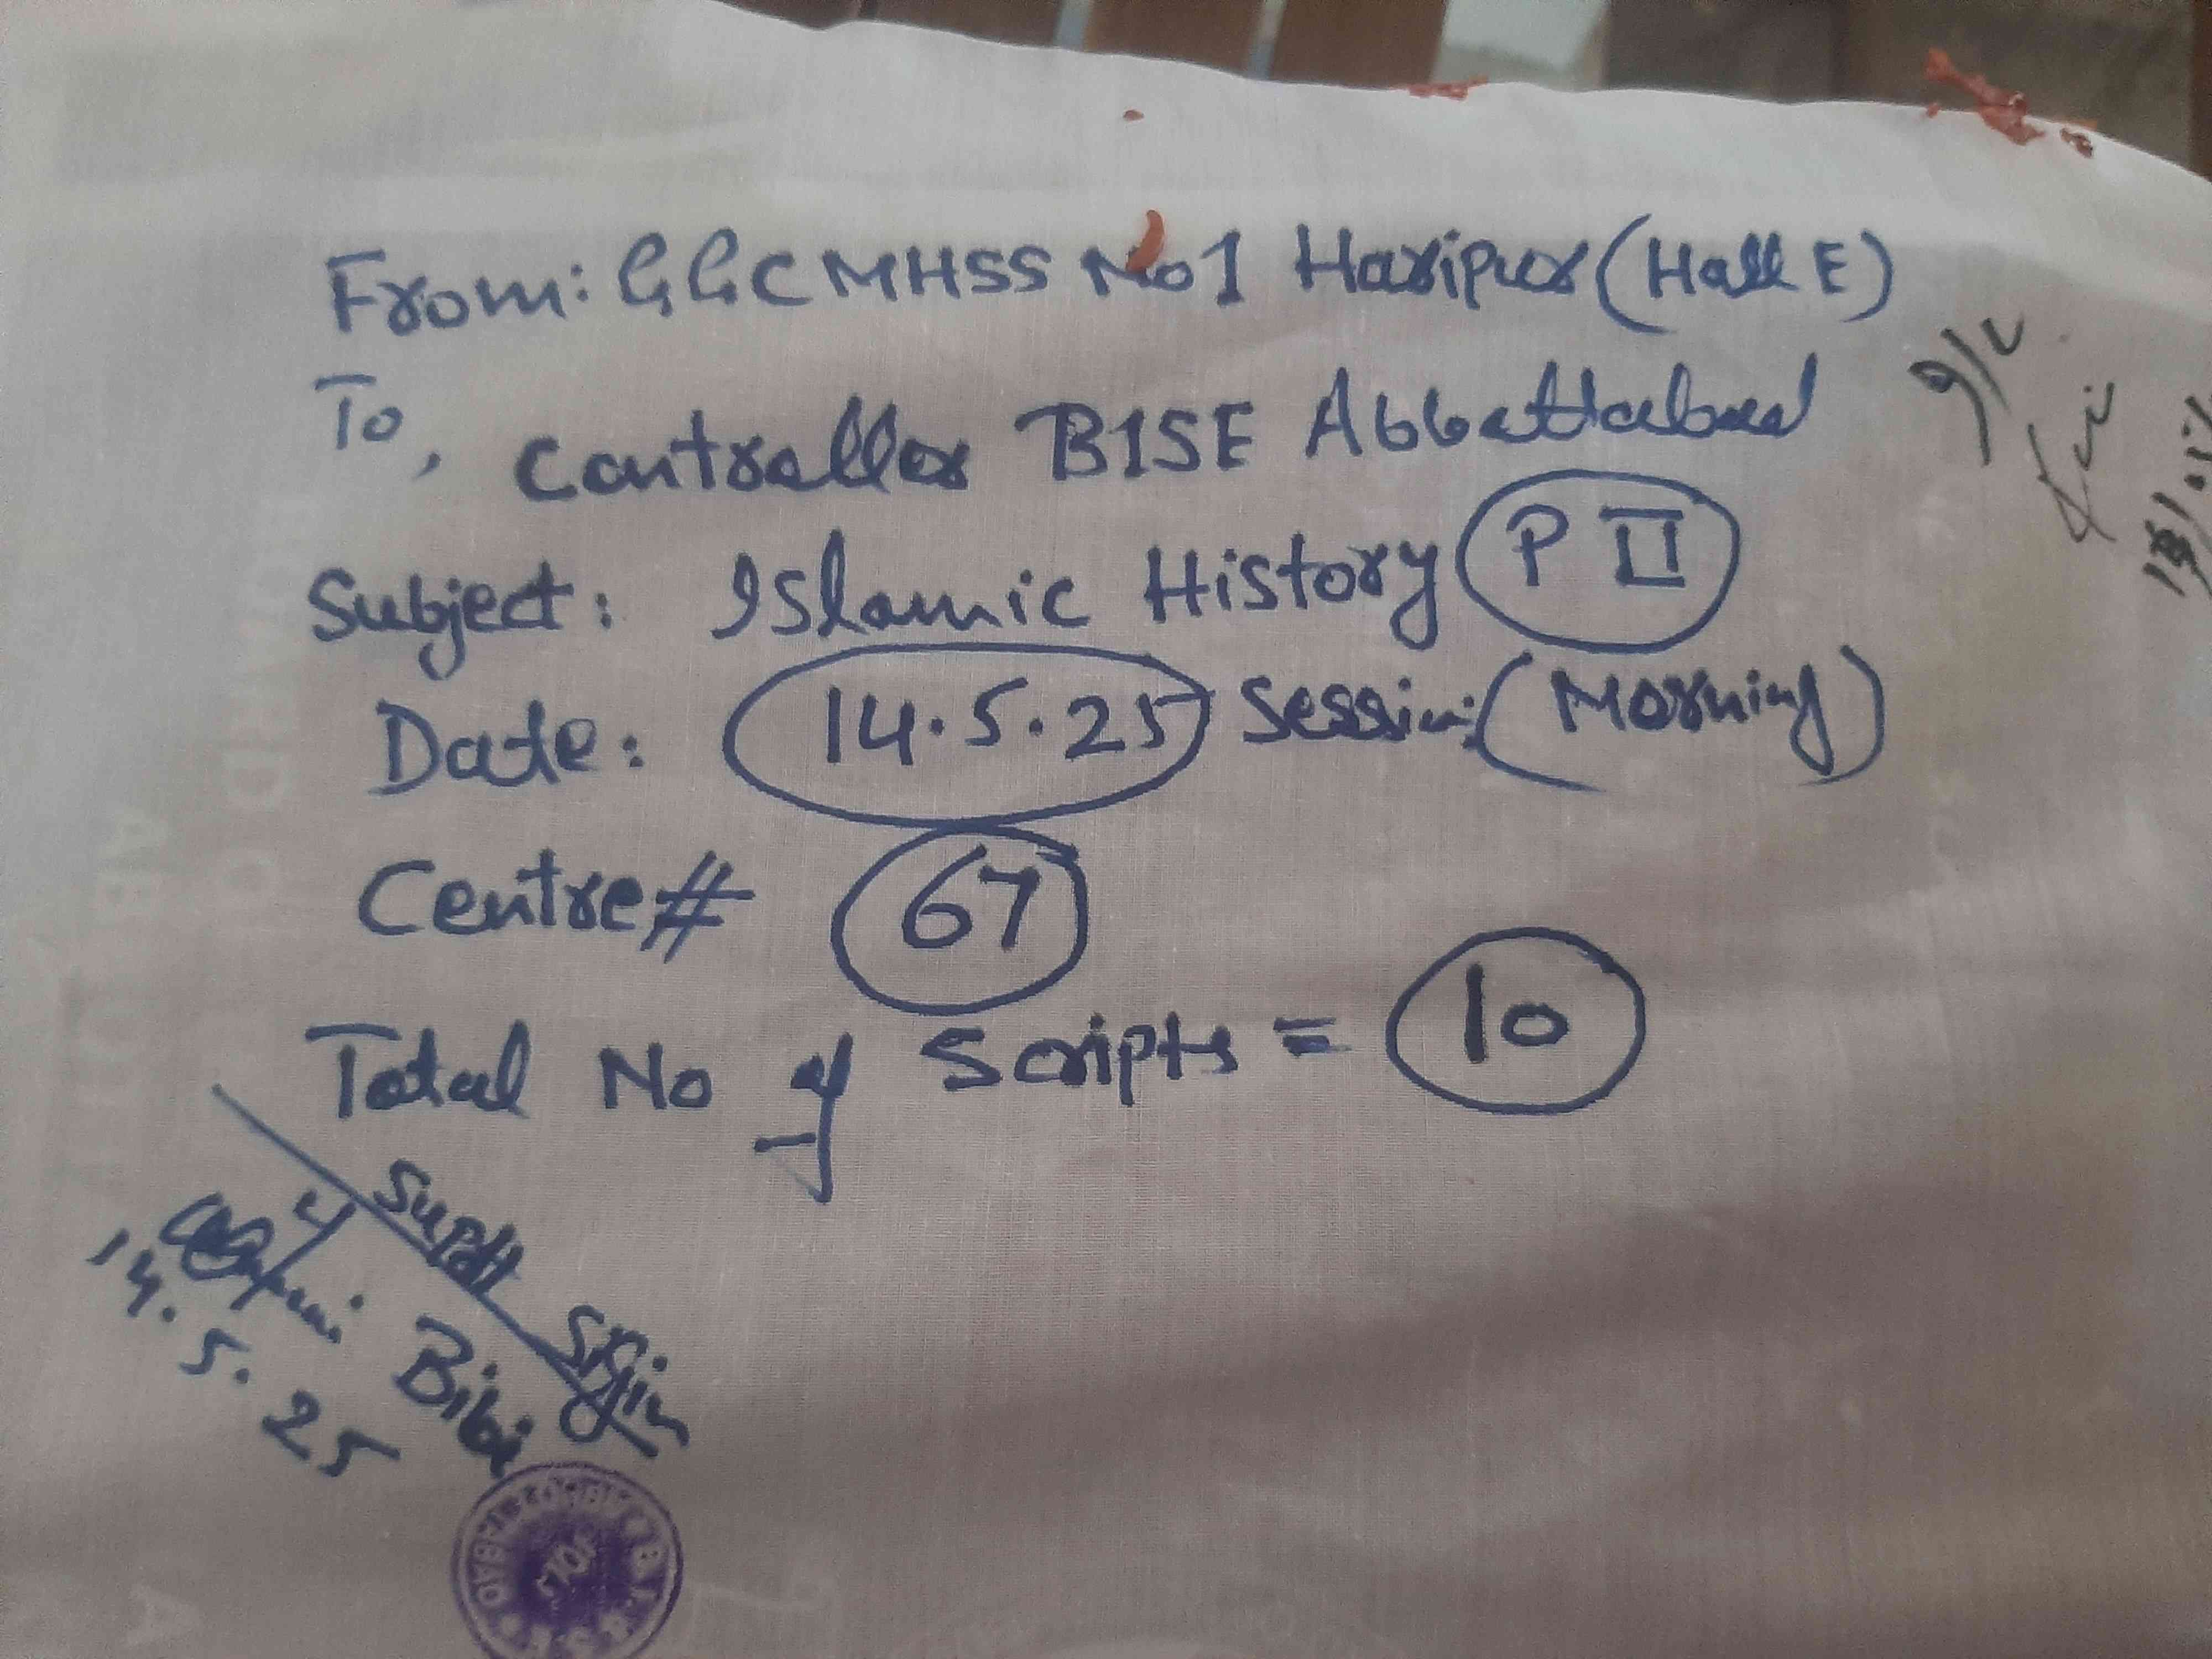 From: GGCMHSS No1 Haripur (Hall E)
To, Controller BISE Abbottabad
Subject: Islamic History (P II)
Date: 14.5.25 Session: (Morning)
Centre# 67
Total No of Scripts = 10
Supdt Sign
Bibi
14.5.25